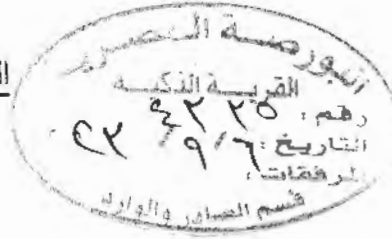 ال
البورصة المصرية
القرية الذكية
رقم :
التاريخ : ٦ / ٩ /
المرفقات :
قسم الصادر والوارد